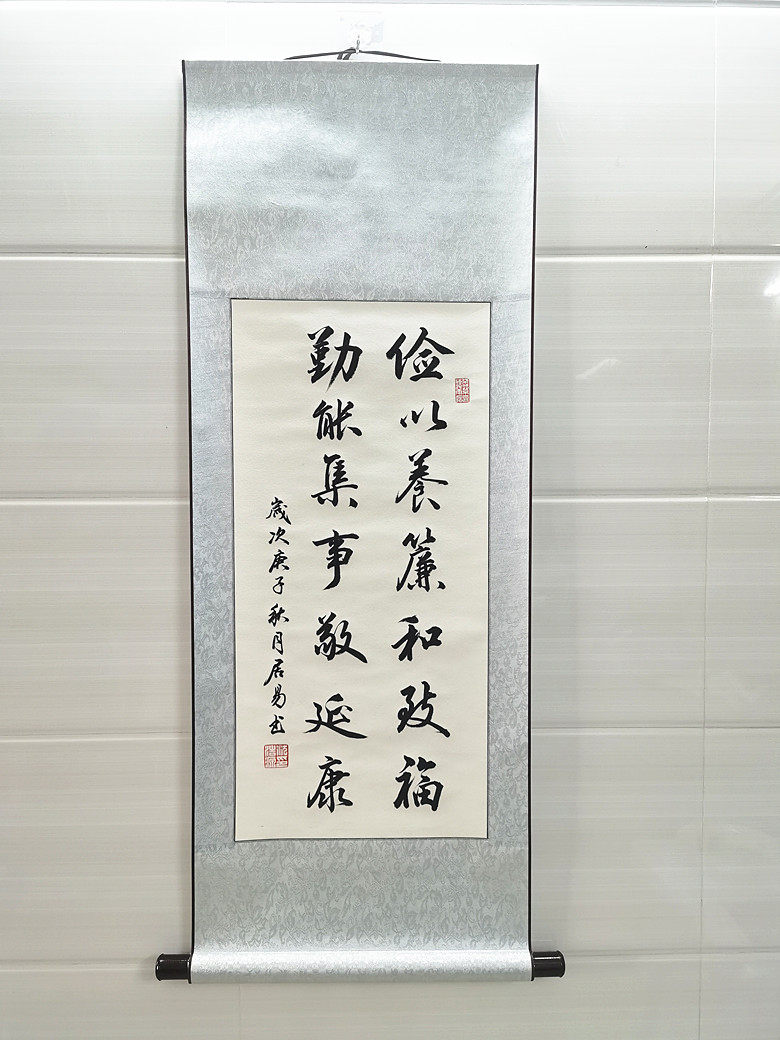 俭以養簾和致福
勤能集事敬延康
歲次庚子秋月居易书